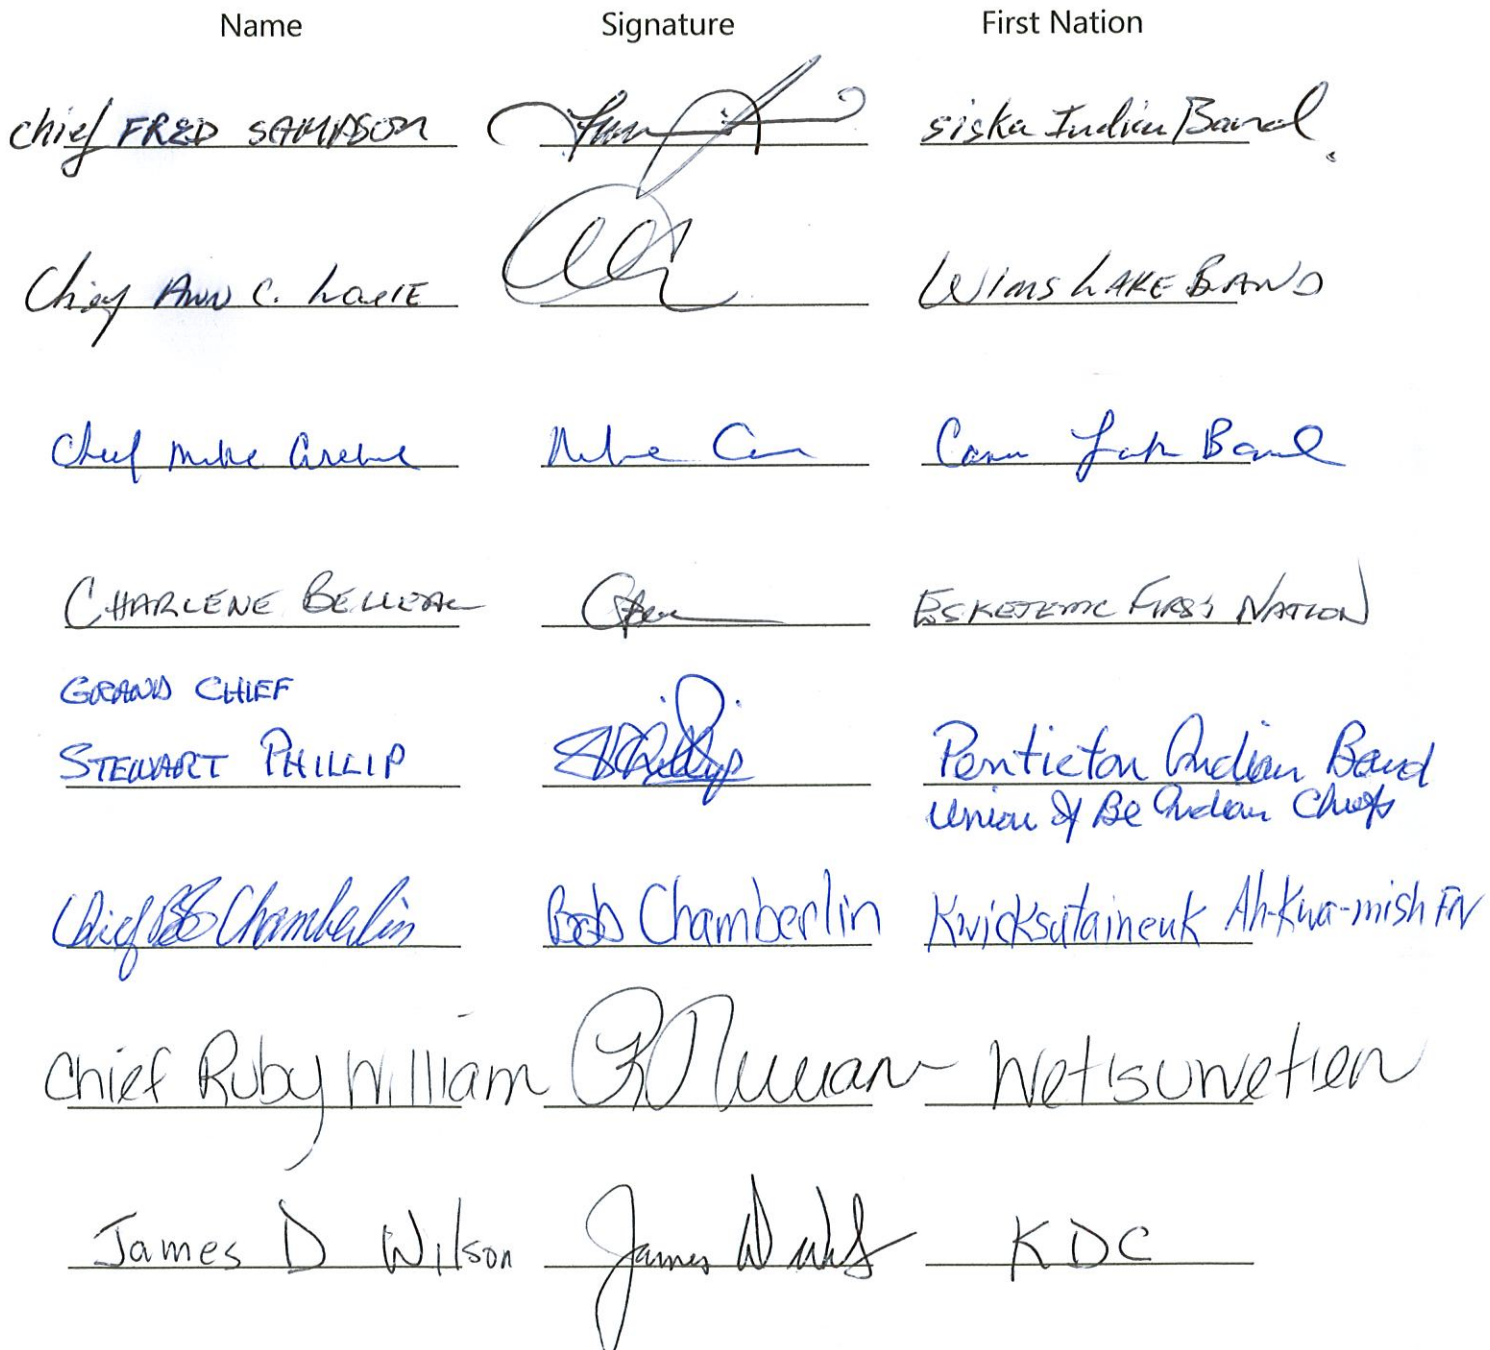 Name Signature First Nation
chief FRED SAMPSON siska Indian Band
Chief ANN C. LOUIE WLMS LAKE BAND
Chief Mike Archie Mike Canim Lake Band
CHARLENE BELLEAU ESKETEMC FIRST NATION
GRAND CHIEF
STEWART PHILLIP SPhillip Penticton Indian Band
Union of Bc Indian Chiefs
Chief Bob Chamberlin Bob Chamberlin Kwicksutaineuk Ah-Kwa-mish FN
Chief Ruby William Wet'suwet'en
James D Wilson James KDC